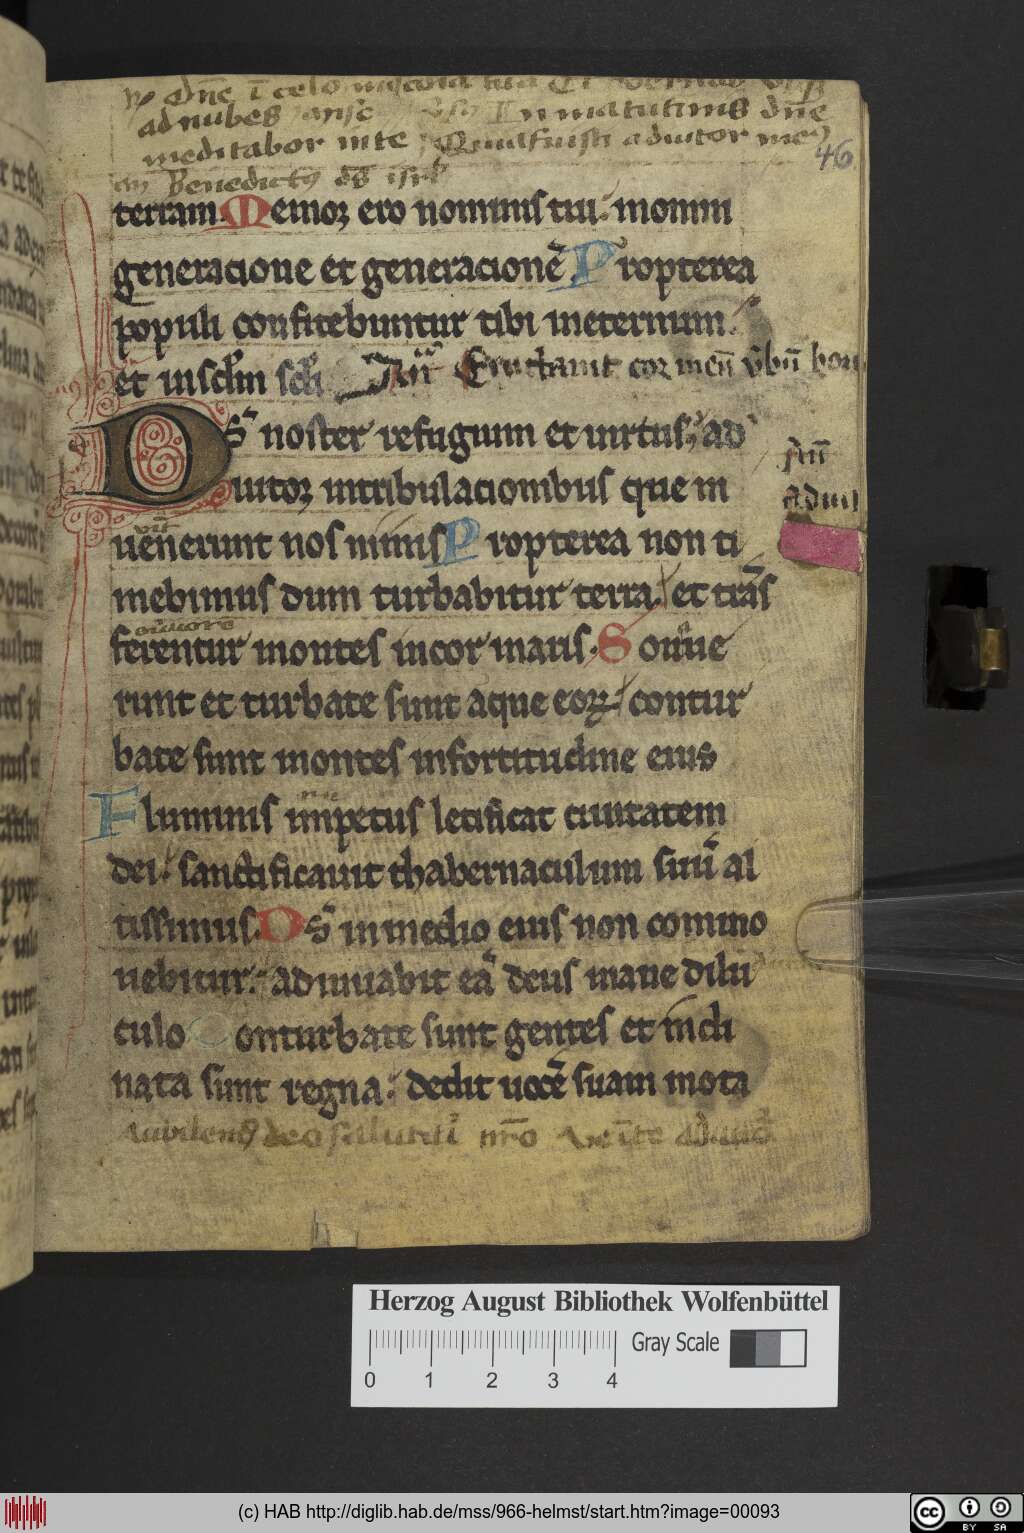 Dn̄e ī celo mīa tua
ad nubes In matutinis dn̄e
meditabor in te Quia fuisti adiutor me9
46
an Benedict9 ds̄ isrl
terram. Memoꝛ ero nominis tui. in omni
generacione et generacionē. Propterea
populi confitebuntur tibi ineternum.
et in sclm̄ scli Añ Eructauit coꝛ meū ūbū bon
Ds̄ noster refugium et uirtus, ad
Añ
uitoꝛ in tribulacionibus que in
Adiu
uenerunt nos nimis Propterea non ti
mebimus dum turbabitur terra et trās
ferentur montes in cor maris. Sonue
runt et turbate sunt aque eoꝝ contur
bate sunt montes in fortitudine eius
Fluminis impetus letificat ciuitatem
dei. sanctificauit thabernaculum suū al
tissimus. Ds̄ in medio eius non commo
uebitur. adiuuabit eā deus mane dilu
culo Conturbate sunt gentes et incli
nata sunt regna. dedit uocē suam mota
deo salutari nr̄o
Herzog August Bibliothek Wolfenbüttel
Gray Scale
0 1 2 3 4
(c) HAB http://diglib.hab.de/mss/966-helmst/start.htm?image=00093
cc BY SA